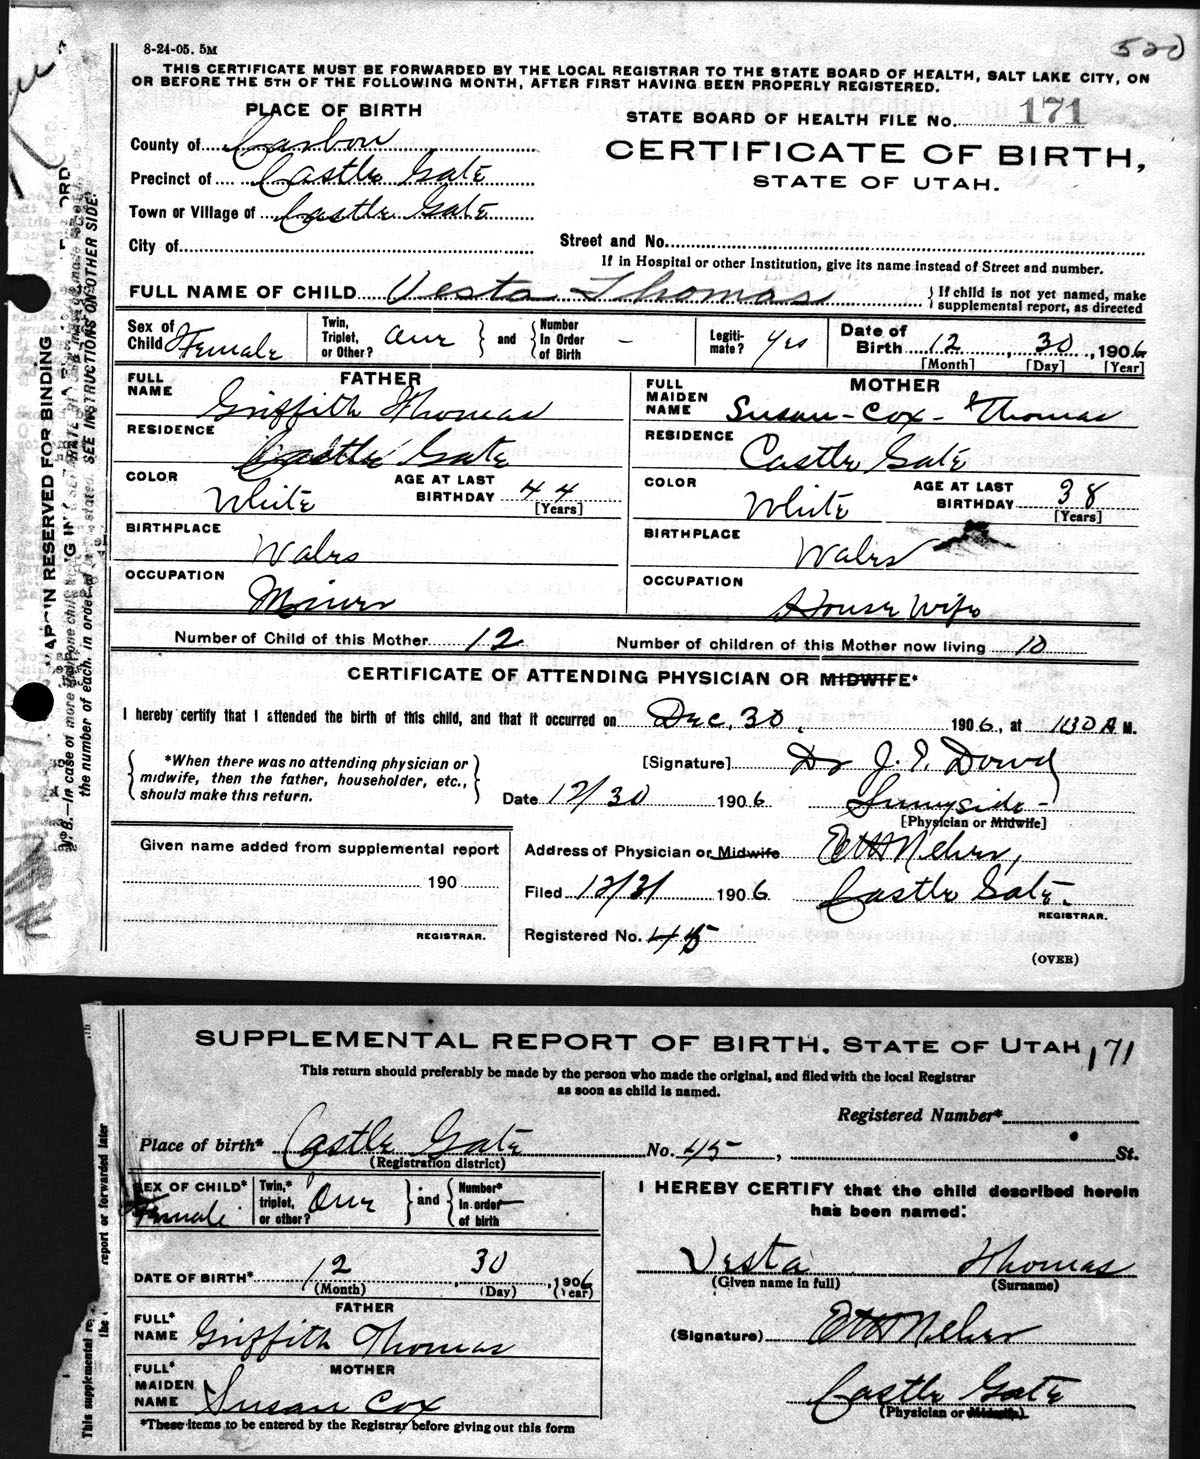 520
8-24-05. 5M
THIS CERTIFICATE MUST BE FORWARDED BY THE LOCAL REGISTRAR TO THE STATE BOARD OF HEALTH, SALT LAKE CITY, ON
OR BEFORE THE 5TH OF THE FOLLOWING MONTH, AFTER FIRST HAVING BEEN PROPERLY REGISTERED.
PLACE OF BIRTH
STATE BOARD OF HEALTH FILE No. 171
County of Carbon
CERTIFICATE OF BIRTH,
STATE OF UTAH.
Precinct of Castle Gate
Town or Village of Castle Gate
City of
Street and No.
If in Hospital or other Institution, give its name instead of Street and number.
FULL NAME OF CHILD Vesta Thomas } If child is not yet named, make supplemental report, as directed
Sex of Child Female Twin, Triplet, or Other? One } and { Number In Order of Birth - Legiti-mate? Yes Date of Birth 12, 30, 1906
[Month] [Day] [Year]
FATHER
FULL NAME Griffith Thomas
MOTHER
FULL MAIDEN NAME Susan-Cox-Thomas
RESIDENCE Castle Gate
RESIDENCE Castle Gate
COLOR White AGE AT LAST BIRTHDAY 44 [Years]
COLOR White AGE AT LAST BIRTHDAY 38 [Years]
BIRTHPLACE Wales
BIRTHPLACE Wales
OCCUPATION Miner
OCCUPATION House Wife
Number of Child of this Mother 12 Number of children of this Mother now living 10
CERTIFICATE OF ATTENDING PHYSICIAN OR MIDWIFE*
I hereby certify that I attended the birth of this child, and that it occurred on Dec, 30, 1906, at 1130 A M.
{ *When there was no attending physician or midwife, then the father, householder, etc., should make this return. }
[Signature] Dr J. I. Dowd
Date 12/30 1906 Sunnyside-
[Physician or Midwife]
Given name added from supplemental report
190
REGISTRAR.
Address of Physician or Midwife
Filed 12/31 1906 Castle Gate.
REGISTRAR.
Registered No. 45
(OVER)
SEE INSTRUCTIONS ON OTHER SIDE
RESERVED FOR BINDING
N.B.—In case of more
the number of each, in order of
SUPPLEMENTAL REPORT OF BIRTH. STATE OF UTAH 171
This return should preferably be made by the person who made the original, and filed with the local Registrar
as soon as child is named.
Registered Number*
Place of birth* Castle Gate No. 45, St.
(Registration district)
SEX OF CHILD* Female Twin,* triplet, or other? One } and { Number* In order of birth
I HEREBY CERTIFY that the child described herein
has been named:
Vesta Thomas
(Given name in full) (Surname)
DATE OF BIRTH* 12, 30, 1906
(Month) (Day) (Year)
FATHER
FULL* NAME Griffith Thomas
(Signature)
MOTHER
FULL* MAIDEN NAME Susan Cox
Castle Gate
(Physician or Midwife)
*These items to be entered by the Registrar before giving out this form
report or forwarded later
This supplemental